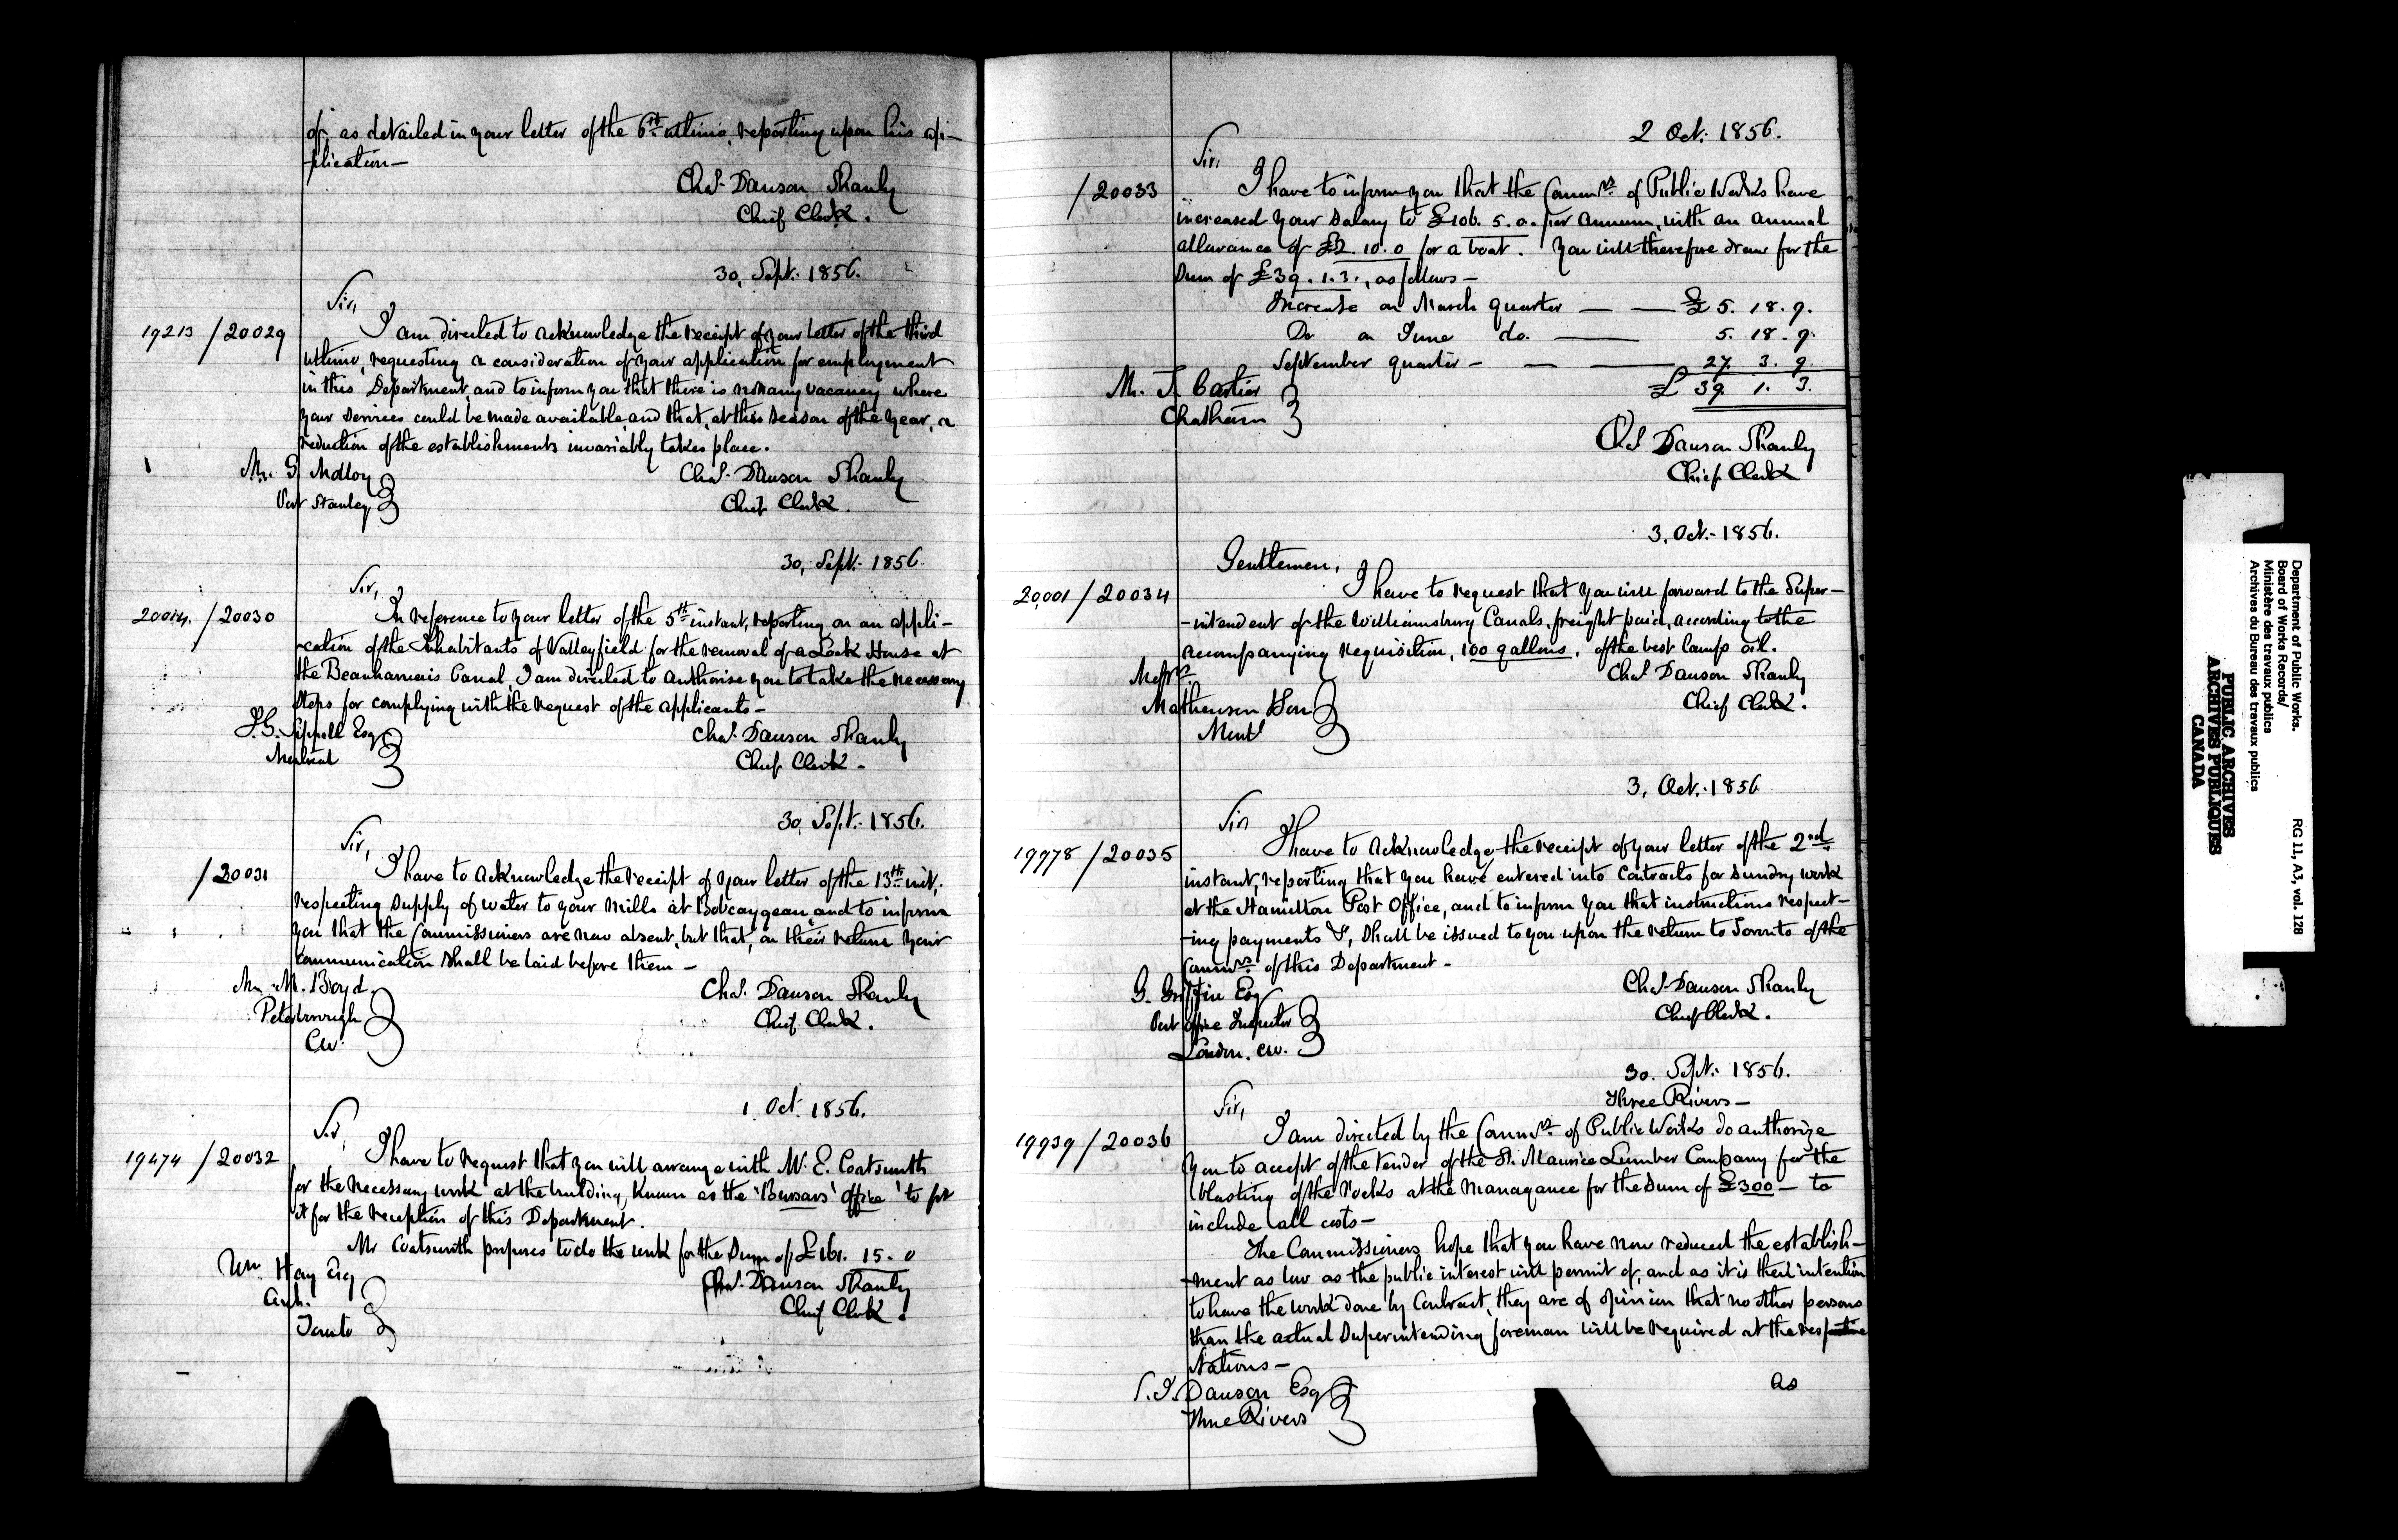 of, as detailed in your letter of the 6th ultimo, reporting upon his ap-
-plication-
Chas. Dawson Shanly
Chief Clerk.
30, Sept. 1856.
Sir,
19213 / 20029
I am directed to acknowledge the receipt of your letter of the third
ultimo, requesting a consideration of your application for employment
in this Department, and to inform you that there is not any vacancy where
your services could be made available, and that, at this season of the year, a
reduction of the establishments invariably takes place.
Mr. G. Molloy
Port Stanley
Chas. Dawson Shanly
Chief Clerk.
30, Sept. 1856
Sir,
20014. / 20030
In reference to your letter of the 5th instant, reporting on an appli-
-cation of the Inhabitants of Valleyfield for the removal of a Lock House at
the Beauharnois Canal, I am directed to authorise you to take the necessary
steps for complying with the request of the applicants-
J. G. Sippell Esq
Montreal
Chas. Dawson Shanly
Chief Clerk-
30, Sept. 1856.
Sir,
/ 20031
I have to acknowledge the receipt of your letter of the 13th inst,
respecting supply of water to your mills at Bobcaygean, and to inform
you that the Commissioners are now absent, but that, on their return your
communication shall be laid before them-
Mr. M. Boyd
Peterborough
CW.
Chas. Dawson Shanly
Chief Clerk.
1 Oct. 1856.
Sir,
19474 / 20032
I have to request that you will arrange with Mr. E. Coatsworth
for the necessary work at the building, known as the 'Bursars' office' to fit
it for the reception of this Department.
Mr Coatsworth proposes to do the work for the sum of £161. 15. 0
Wm. Hay Esq
Arch.
Toronto
Chas. Dawson Shanly
Chief Clerk.
2 Oct. 1856.
Sir,
/ 20033
I have to inform you that the Commrs. of Public Works have
increased your salary to £106. 5. 0. per annum, with an annual
allowance of £2. 10. 0 for a boat. You will therefore draw for the
sum of £39. 1. 3., as follows-
Increase on March quarter — — £5. 18. 9.
Do on June do. — 5. 18. 9.
September quarter - — — 27. 3. 9.
£ 39. 1. 3.
Mr. J. Cartier
Chatham
Chas Dawson Shanly
Chief Clerk
3, Oct. 1856.
Gentlemen,
20,001 / 20034
I have to request that you will forward to the Super-
-intendent of the Williamsburg Canals, freight paid, according to the
accompanying requisition, 100 gallons, of the best lamp oil.
Messrs.
Mathewson & Son
Montl
Chas Dawson Shanly
Chief Clerk.
3, Oct. 1856
Sir
19978 / 20035
I have to acknowledge the receipt of your letter of the 2nd.
instant, reporting that you have entered into contracts for sundry work
at the Hamilton Post Office, and to inform you that instructions respect-
-ing payments &, shall be issued to you upon the return to Toronto of the
Commrs. of this Department-
G. Griffin Esq
Post Office Inspector
London. CW.
Chas Dawson Shanly
Chief Clerk.
30. Sept. 1856.
Three Rivers-
Sir,
19939 / 20036
I am directed by the Commrs. of Public Works do authorize
you to accept of the tender of the St. Maurice Lumber Company for the
blasting of the rocks at the Managance for the sum of £300- to
include all costs-
The Commissioners hope that you have now reduced the establish-
-ment as low as the public interest will permit of, and as it is their intention
to have the work done by Contract, they are of opinion that no other persons
than the actual superintending foreman will be required at the respective
stations-
as
S. J. Dawson Esq
Three Rivers
Department of Public Works.
Board of Works Records/
Ministère des travaux publics
Archives du Bureau des travaux publics
RG 11, A3, vol. 128
PUBLIC ARCHIVES
ARCHIVES PUBLIQUES
CANADA